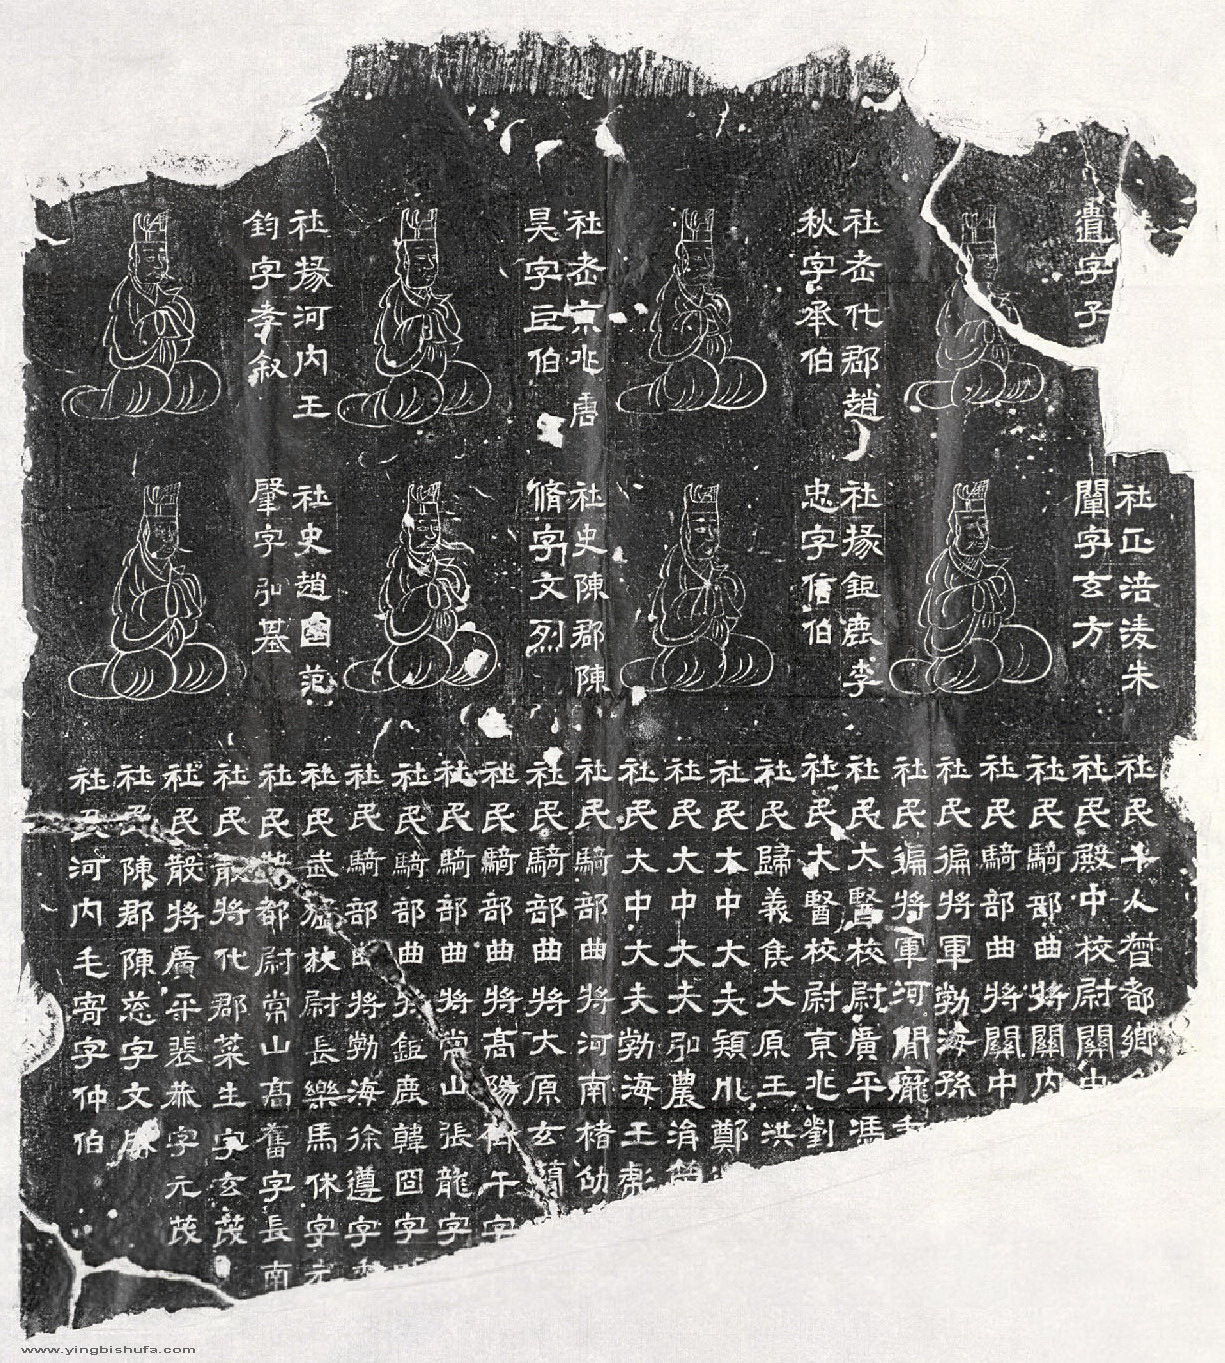 遺字子
社老代郡趙
秋字承伯
社老京兆唐
昊字巨伯
社掾河內王
鈞字孝叙
社正涪淩朱
闡字玄方
社掾鉅鹿李
忠字信伯
社史陳郡陳
脩字文烈
社史趙國范
肇字弘基
社民平人督都鄉
社民殿中校尉關中
社民騎部曲將關內
社民騎部曲將關中
社民偏將軍勃海孫
社民偏將軍河間龐
社民大醫校尉廣平馮
社民大醫校尉京兆劉
社民歸義侯大原王洪
社民大中大夫潁川鄭
社民大中大夫弘農
社民大中大夫勃海王彪
社民騎部曲將河南楮劭
社民騎部曲將大原玄
社民騎部曲將高陽齊午字
社民騎部曲將常山張龍字
社民騎部曲將鉅鹿韓囧字
社民騎部曲將勃海徐遵字
社民武猛校尉長樂馬休字元
社民都尉常山高舊字長南
社民散將代郡萊生字玄茂
社民散將廣平裴恭字元茂
社民陳郡陳慈字文
社民河內毛寄字仲伯
www.yingbishufa.com